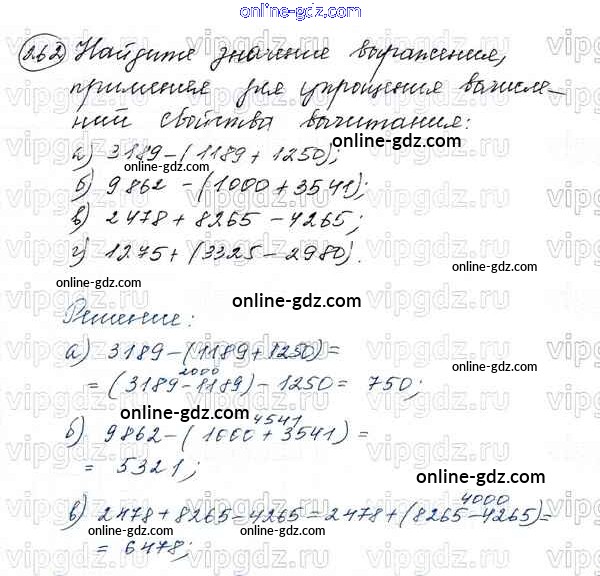 online-gdz.com
1.62 Найдите значение выражения,
применяя для упрощения вычисле-
ний свойства вычитания:
а) 3189-(1189+1250);
online-gdz.com
б) 9862-(1000+3541);
в) 2478+8265-4265;
г) 1275+(3325-2980).
online-gdz.com
Решение:
online-gdz.com
а) 3189-(1189+1250)=
2000
=(3189-1189)-1250= 750;
online-gdz.com
4541
б) 9862-(1000+3541)=
= 5321;
online-gdz.com
4000
в) 2478+8265-4265=2478+(8265-4265)=
= 6478;
online-gdz.com
vipgdz.ru